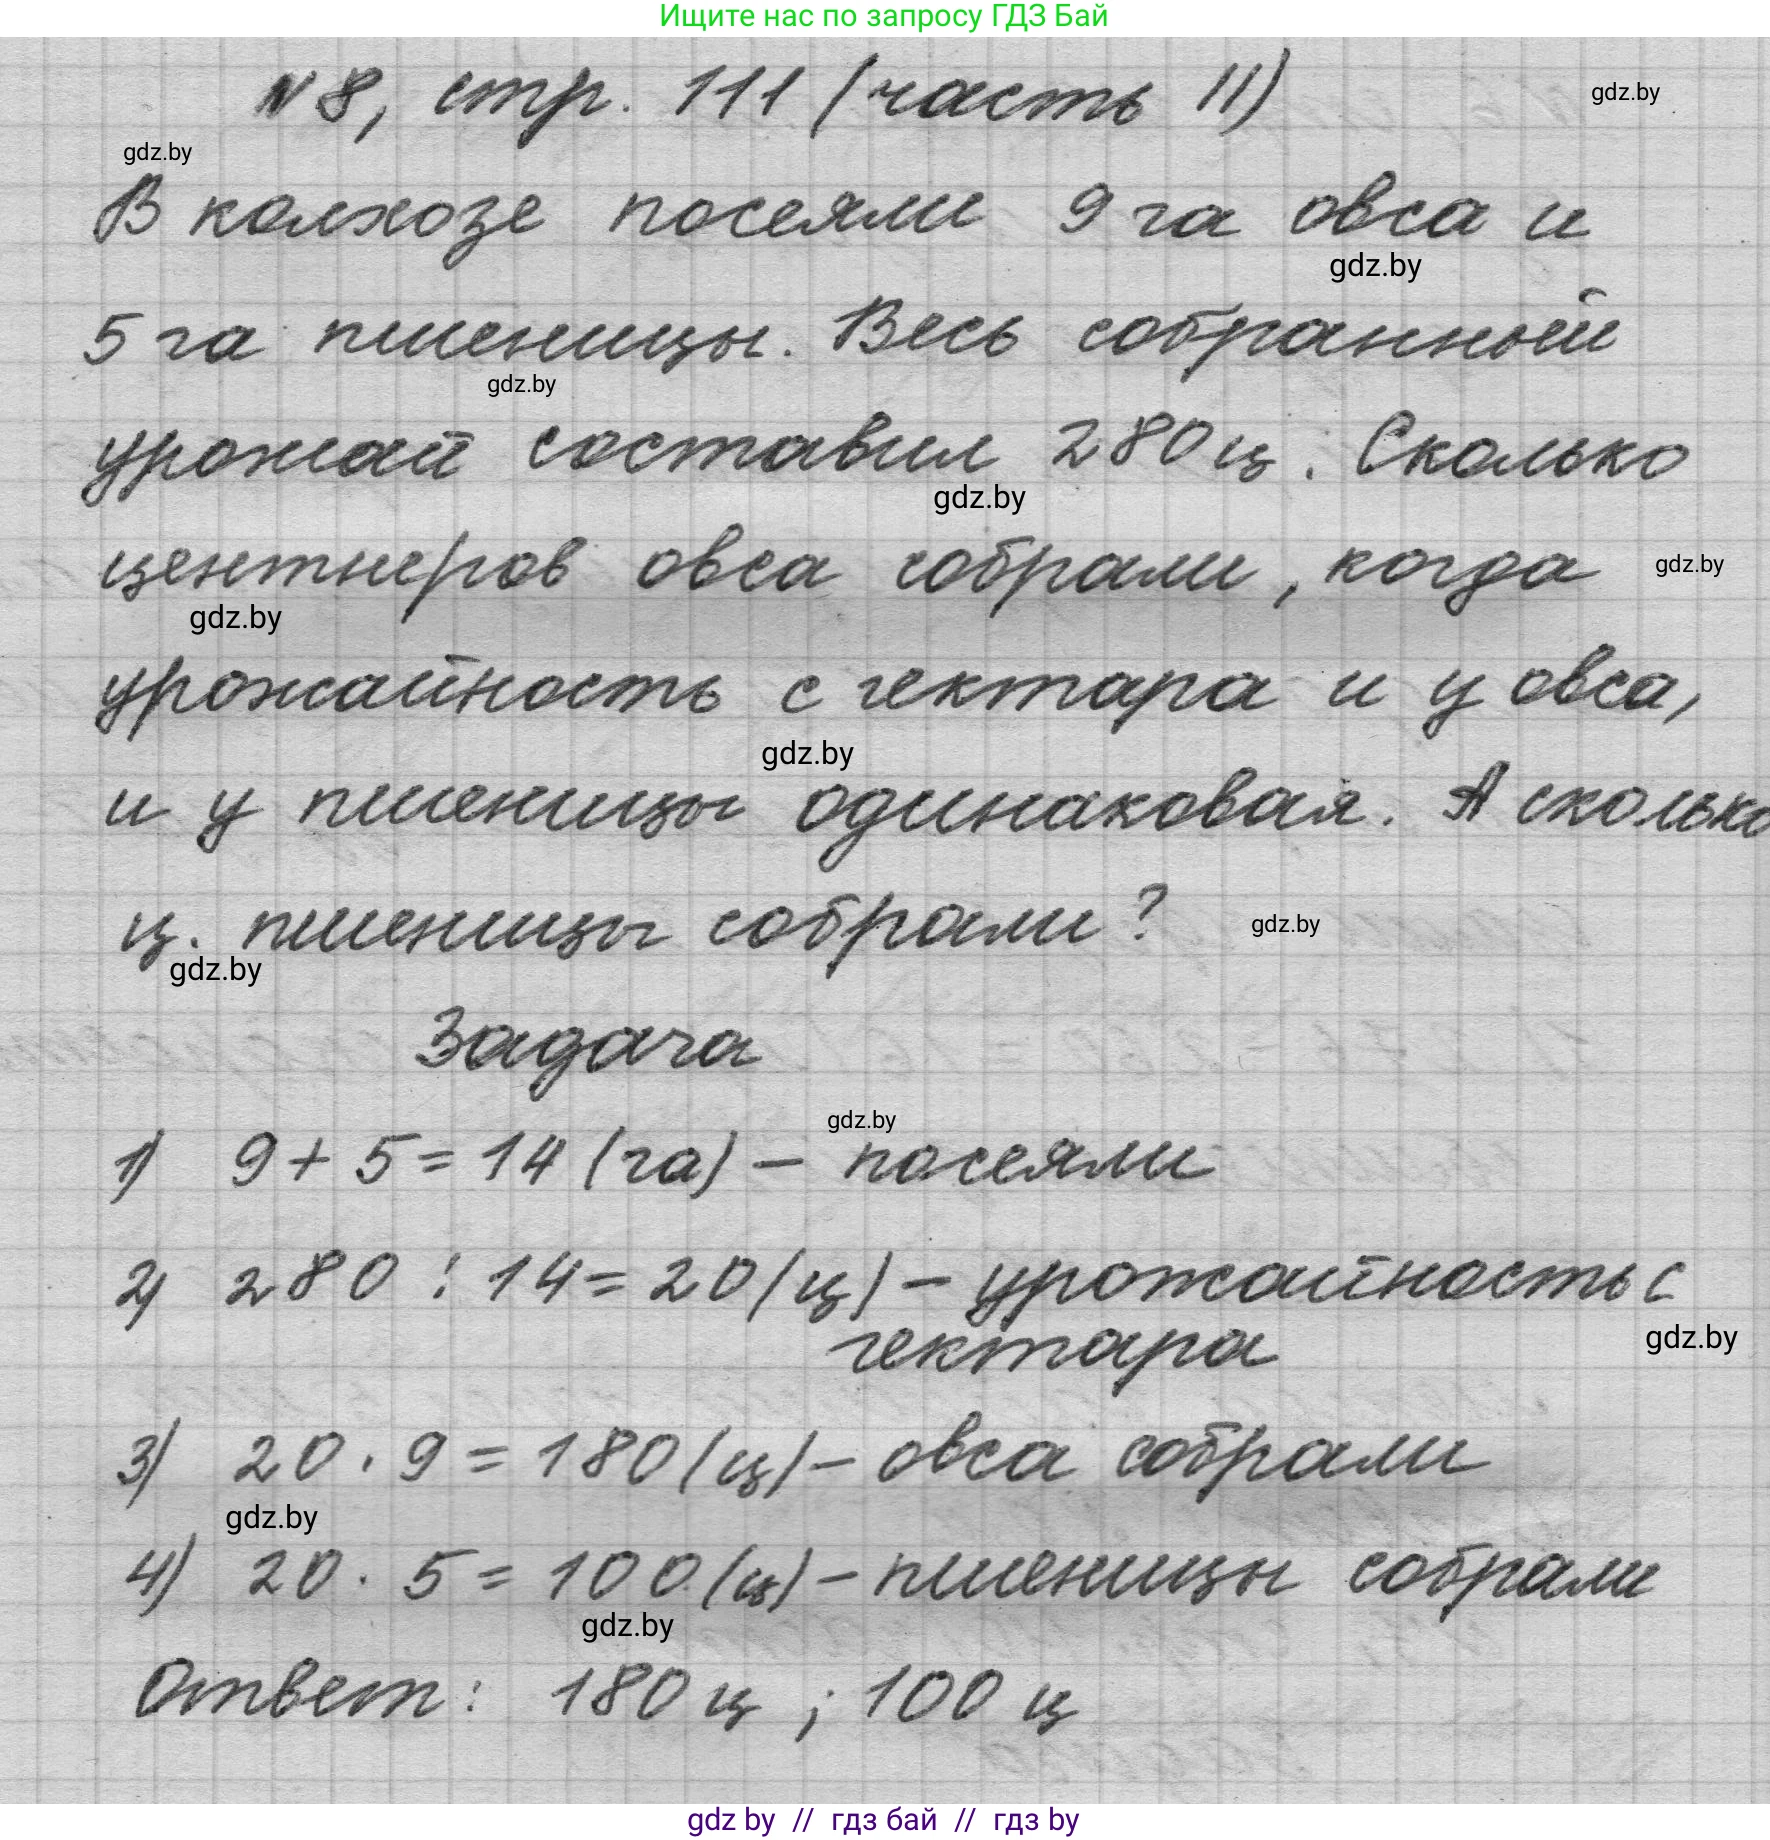 Ищите нас по запросу ГДЗ Бай
№8, стр. 111 (часть II)
gdz.by
gdz.by
В колхозе посеяли 9 га овса и
gdz.by
5 га пшеницы. Весь собранный
gdz.by
урожай составил 280 ц. Сколько
gdz.by
центнеров овса собрали, когда
gdz.by
gdz.by
урожайность с гектара и у овса,
gdz.by
и у пшеницы одинаковая. А сколько
ц. пшеницы собрали?
gdz.by
gdz.by
Задача
gdz.by
1) 9 + 5 = 14 (га) – посеяли
2) 280 : 14 = 20 (ц) – урожайность с
гектара
gdz.by
3) 20 · 9 = 180 (ц) – овса собрали
gdz.by
4) 20 · 5 = 100 (ц) – пшеницы собрали
gdz.by
Ответ: 180 ц ; 100 ц
gdz by // гдз бай // гдз by